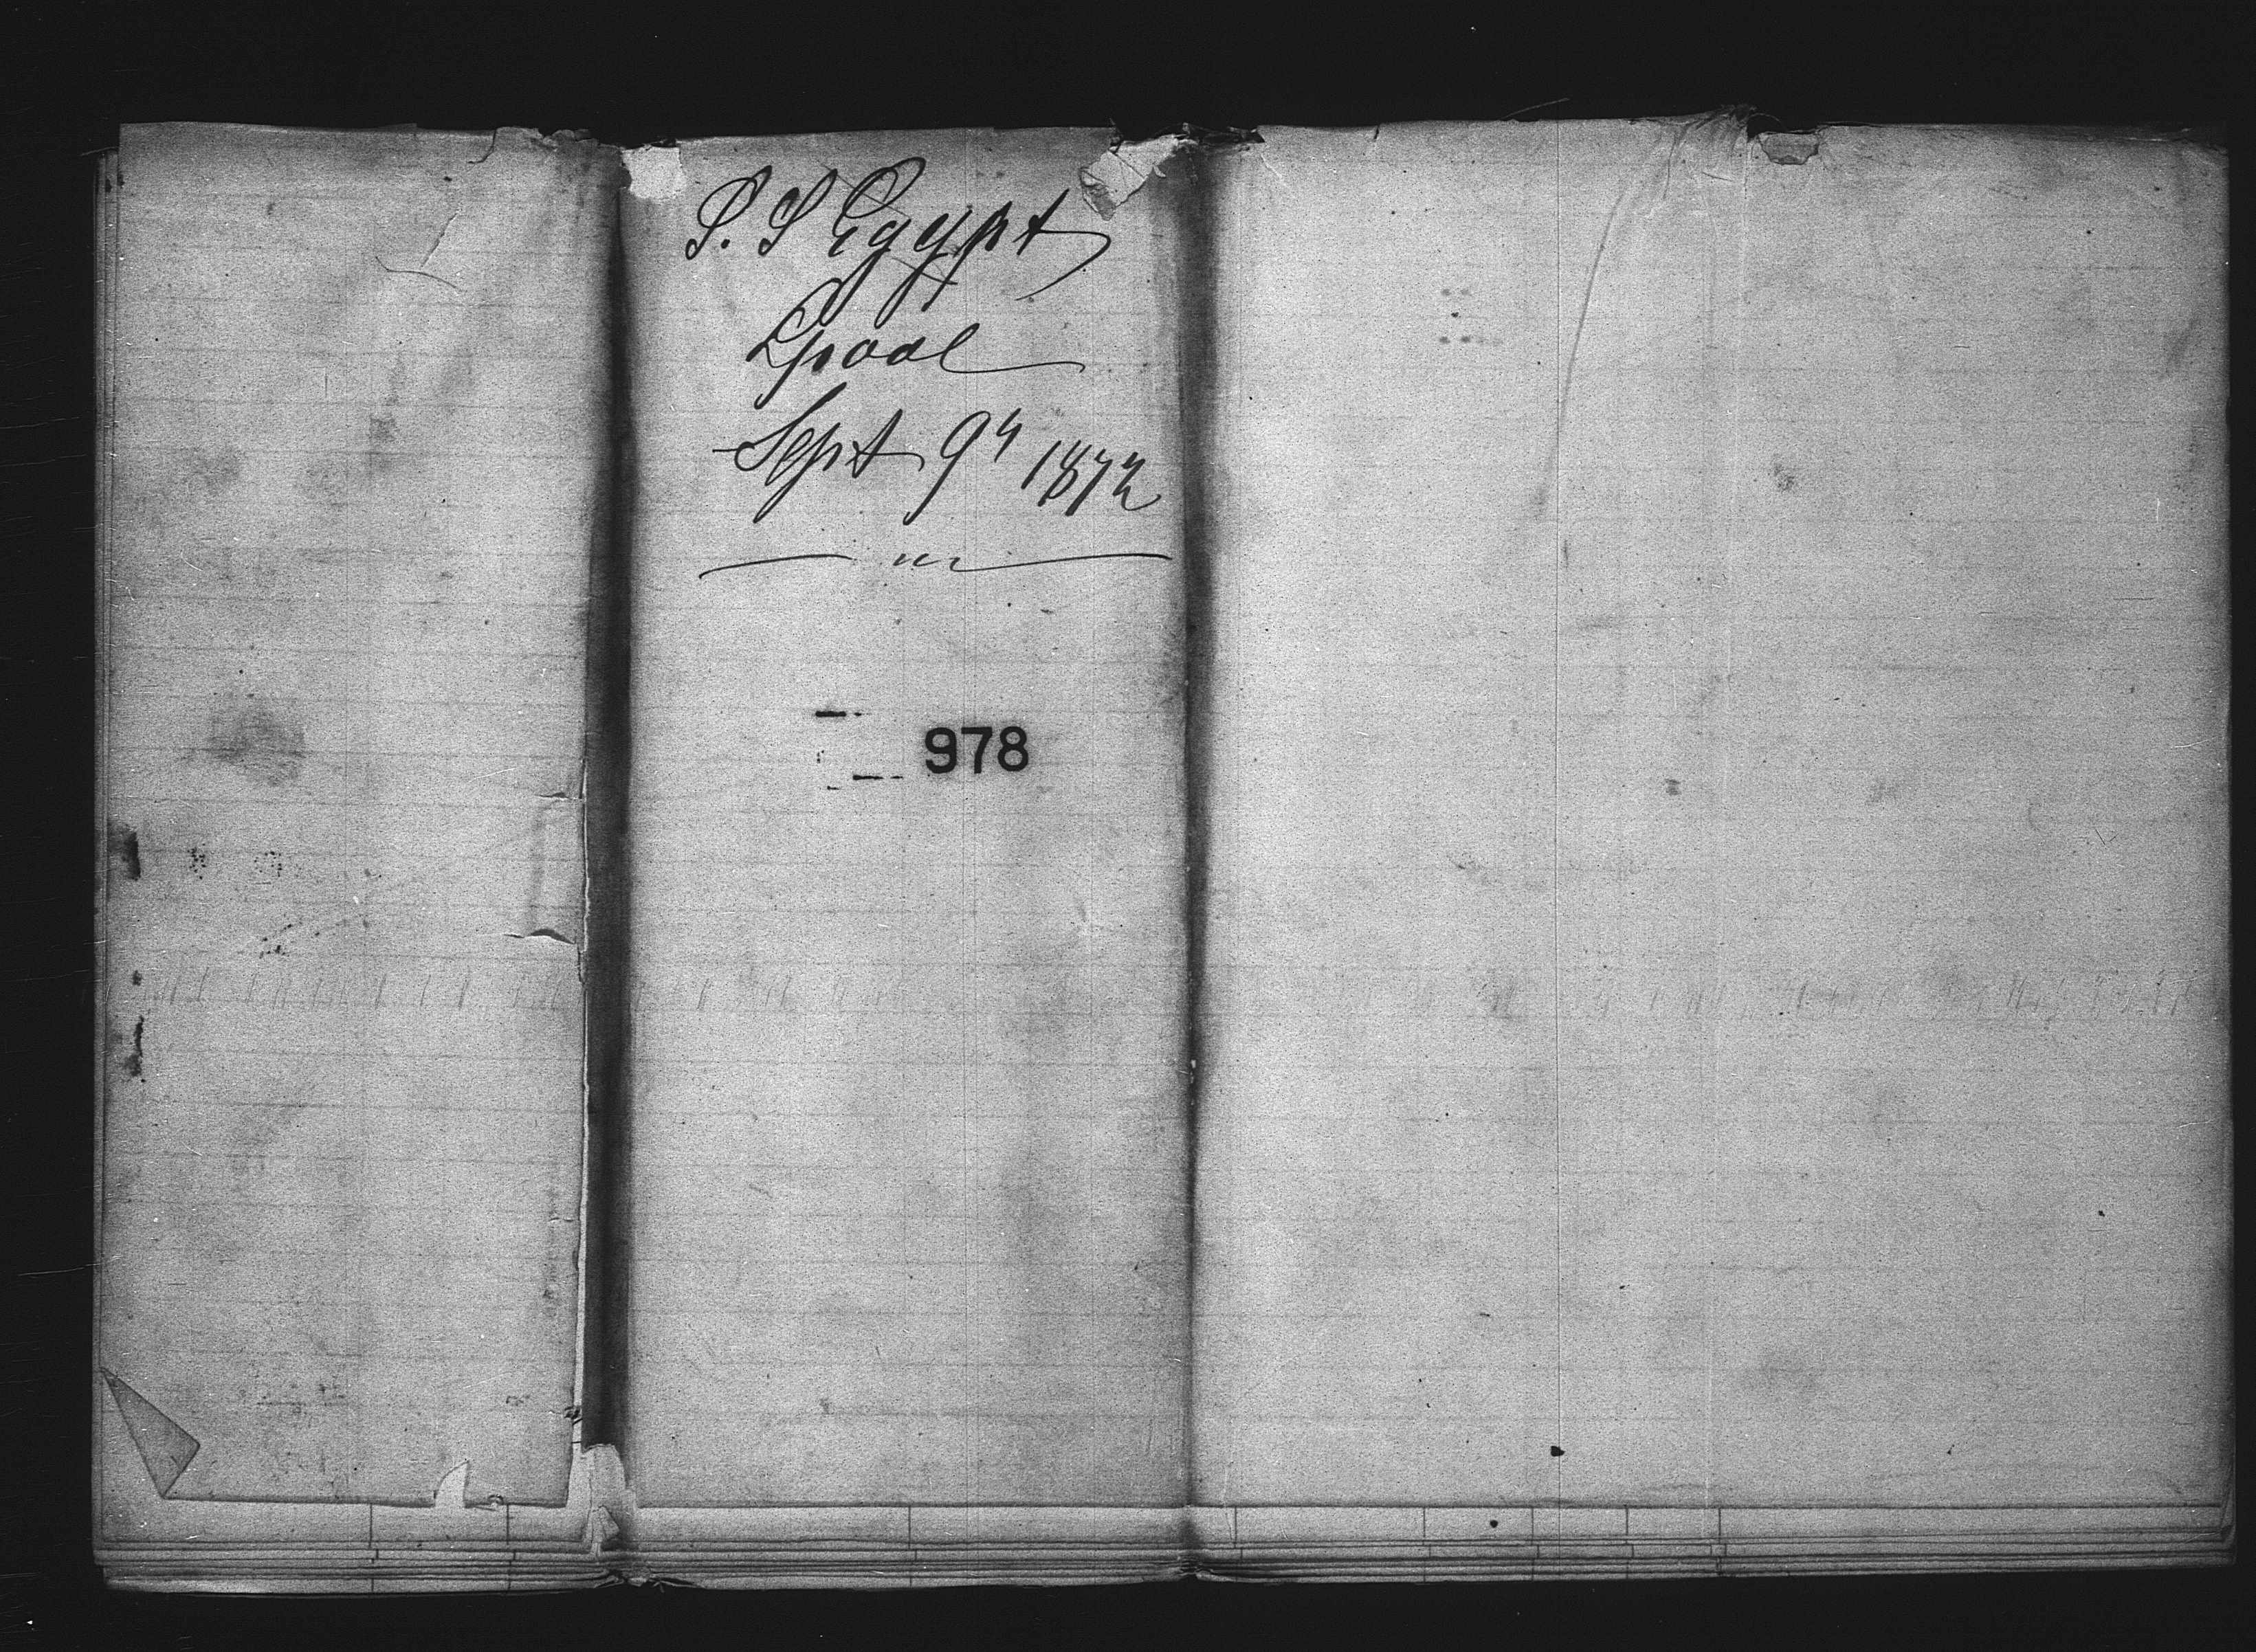 S. S Egypt
Lpool
Sept 9th 1872
978